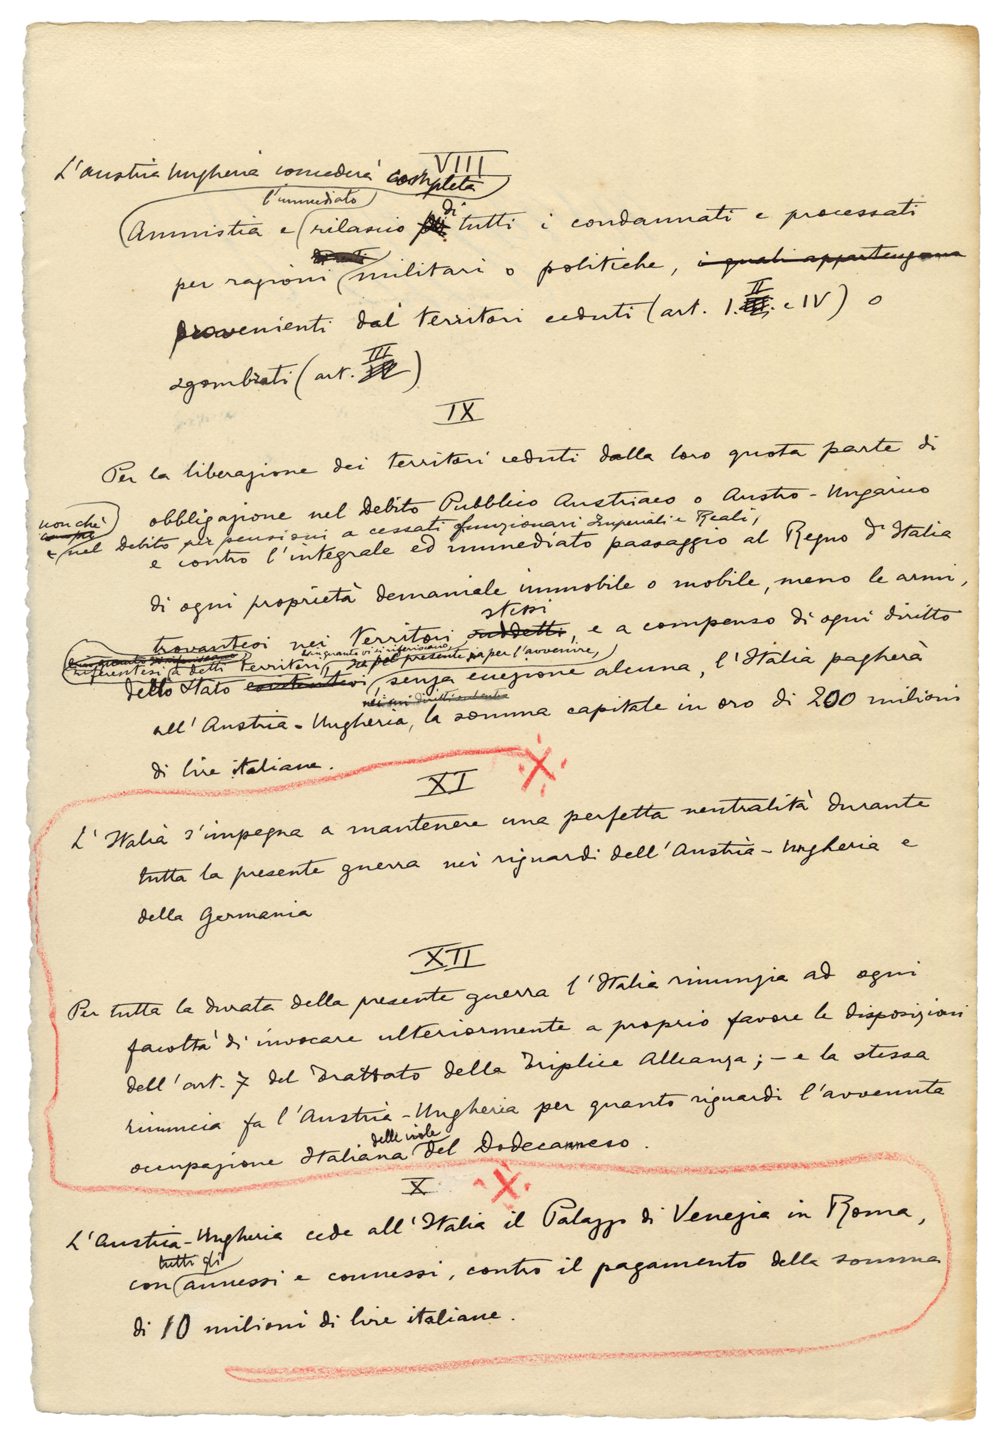 VIII
L'Austria Ungheria concederà completa
l'immediato
Amnistia e rilascio di tutti i condannati e processati
per ragioni militari o politiche, i quali appartengono
provenienti dai territori ceduti (art. I. II e IV) o
sgombrati (art. III)
IX
Per la liberazione dei territori ceduti dalla loro quota parte di
obbligazione nel debito Pubblico Austriaco o Austro-Ungarico
non chè
nel debito per pensioni a cessati funzionari Imperiali e Reali,
e contro l'integrale ed immediato passaggio al Regno d'Italia
di ogni proprietà demaniale immobile o mobile, meno le armi,
stessi
trovantesi nei territori suddetti, e a compenso di ogni diritto
in quanto vi si riferiscano
riferentesi a detti territori, sia pel presente sia per l'avvenire,
dello Stato senza eccezione alcuna, l'Italia pagherà
all'Austria-Ungheria, la somma capitale in oro di 200 milioni
di lire italiane.
XI
L'Italia s'impegna a mantenere una perfetta neutralità durante
tutta la presente guerra nei riguardi dell'Austria-Ungheria e
della Germania
XII
Per tutta la durata della presente guerra l'Italia rinunzia ad ogni
facoltà di invocare ulteriormente a proprio favore le disposizioni
dell'art. 7 del Trattato della Triplice Alleanza; - e la stessa
rinuncia fa l'Austria-Ungheria per quanto riguardi l'avvenuta
delle isole
occupazione Italiana del Dodecanneso.
X
L'Austria-Ungheria cede all'Italia il Palazzo di Venezia in Roma,
tutti gli
con annessi e connessi, contro il pagamento della somma
di 10 milioni di lire italiane.